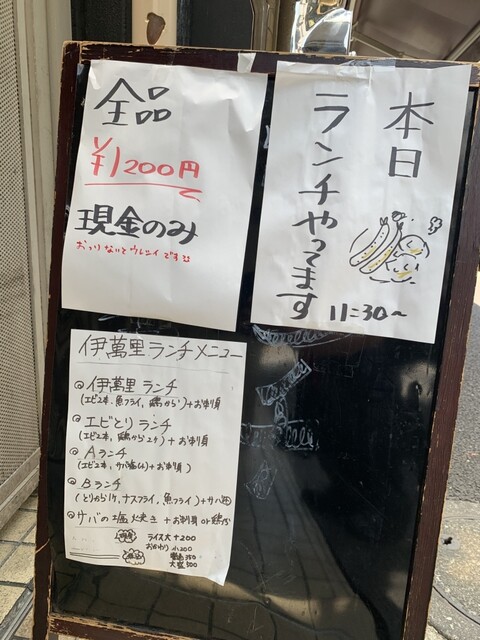 全品
¥1200円
現金のみ
おつりないとウレシイです
本日
ランチやってます
11:30~
伊萬里ランチメニュー
伊萬里ランチ
(エビ2本,魚フライ,鶏から)+お刺身
エビとりランチ
(エビ2本,鶏から2ヶ)+お刺身
Aランチ
(エビ2本,サバ塩(小)+お刺身)
Bランチ
(とりから1ヶ,ナスフライ,魚フライ)+サバ塩
サバの塩焼き+お刺身or鶏から
ライス大+200
おかわり小200
350
大盛500